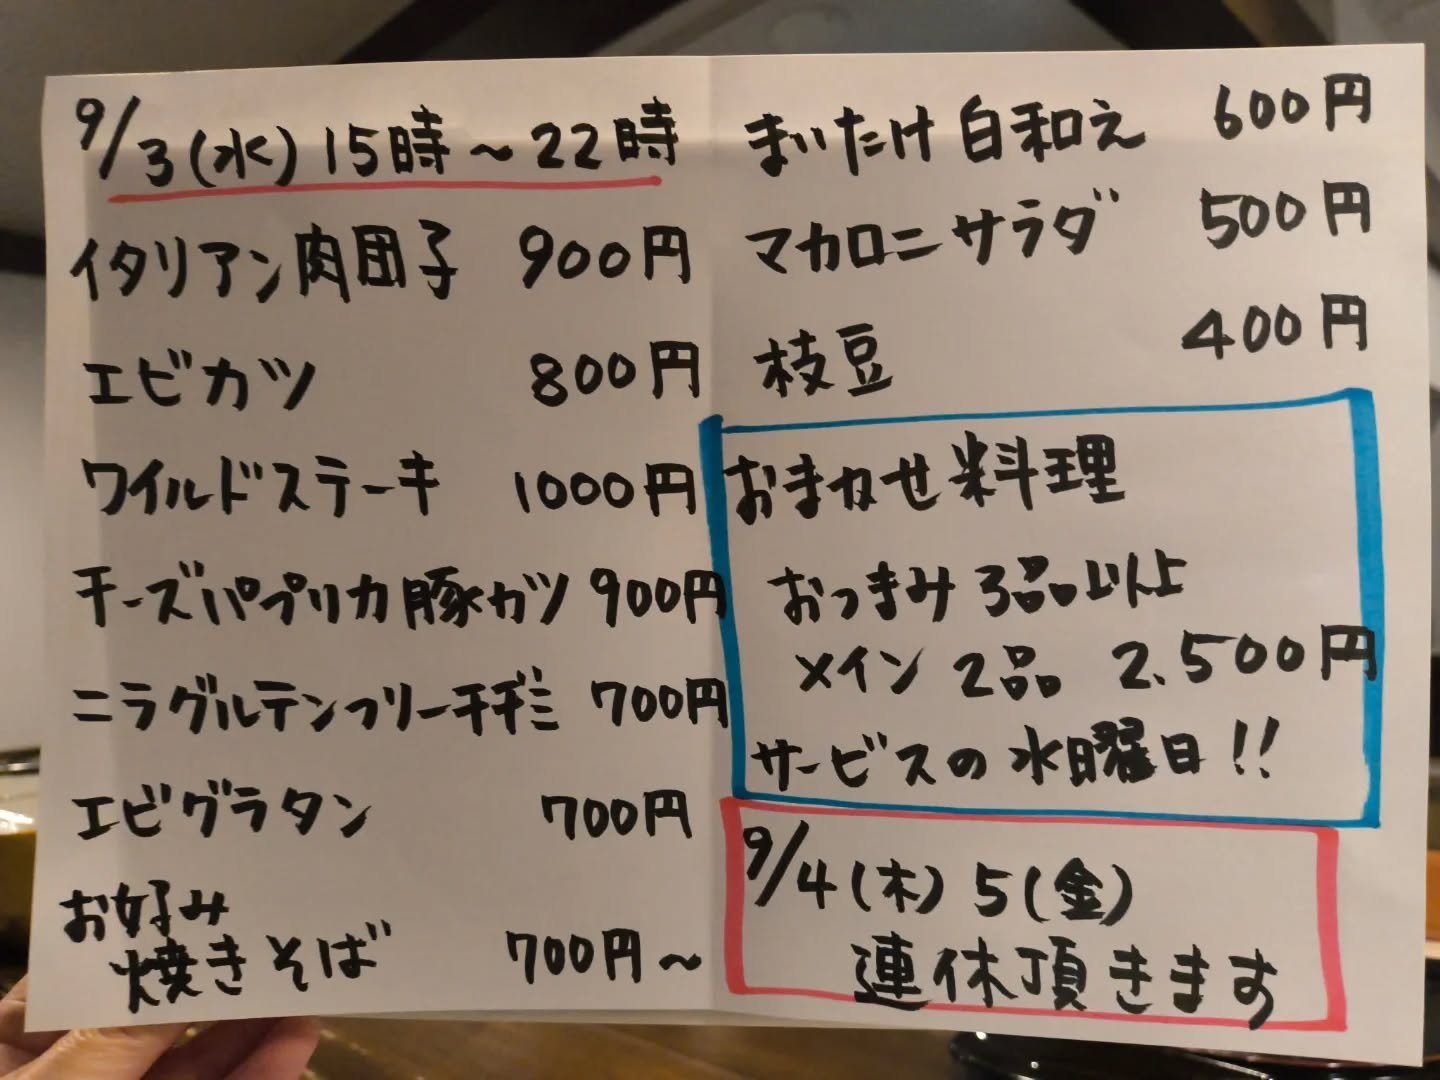 9/3(水)15時～22時
イタリアン肉団子 900円
エビカツ 800円
ワイルドステーキ 1000円
チーズパプリカ豚カツ 900円
ニラグルテンフリーチヂミ 700円
エビグラタン 700円
お好み
焼きそば 700円～
まいたけ白和え 600円
マカロニサラダ 500円
枝豆 400円
おまかせ料理
おつまみ3品以上
メイン2品 2.500円
サービスの水曜日!!
9/4(木)5(金)
連休頂きます